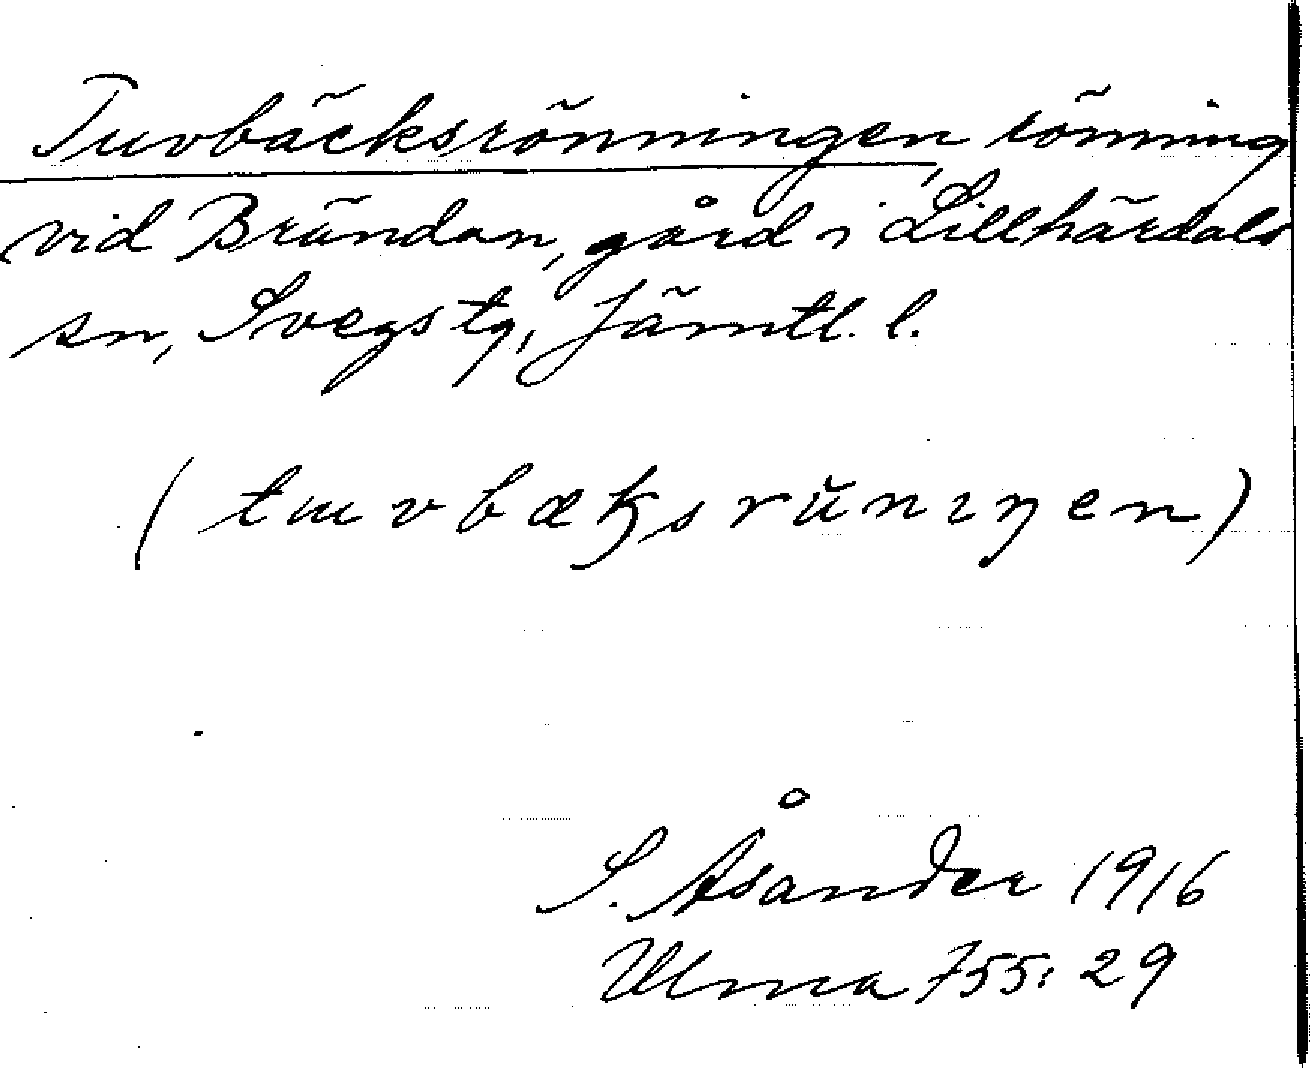 Tuvbäcksrönningen, rönning
vid Brändan, gård i Lillhärdals
sn, Svegs tg, Jämtl. l.
(tuvbæksrŭnıŋen)
S. Åsander 1916
Ulma 755:29